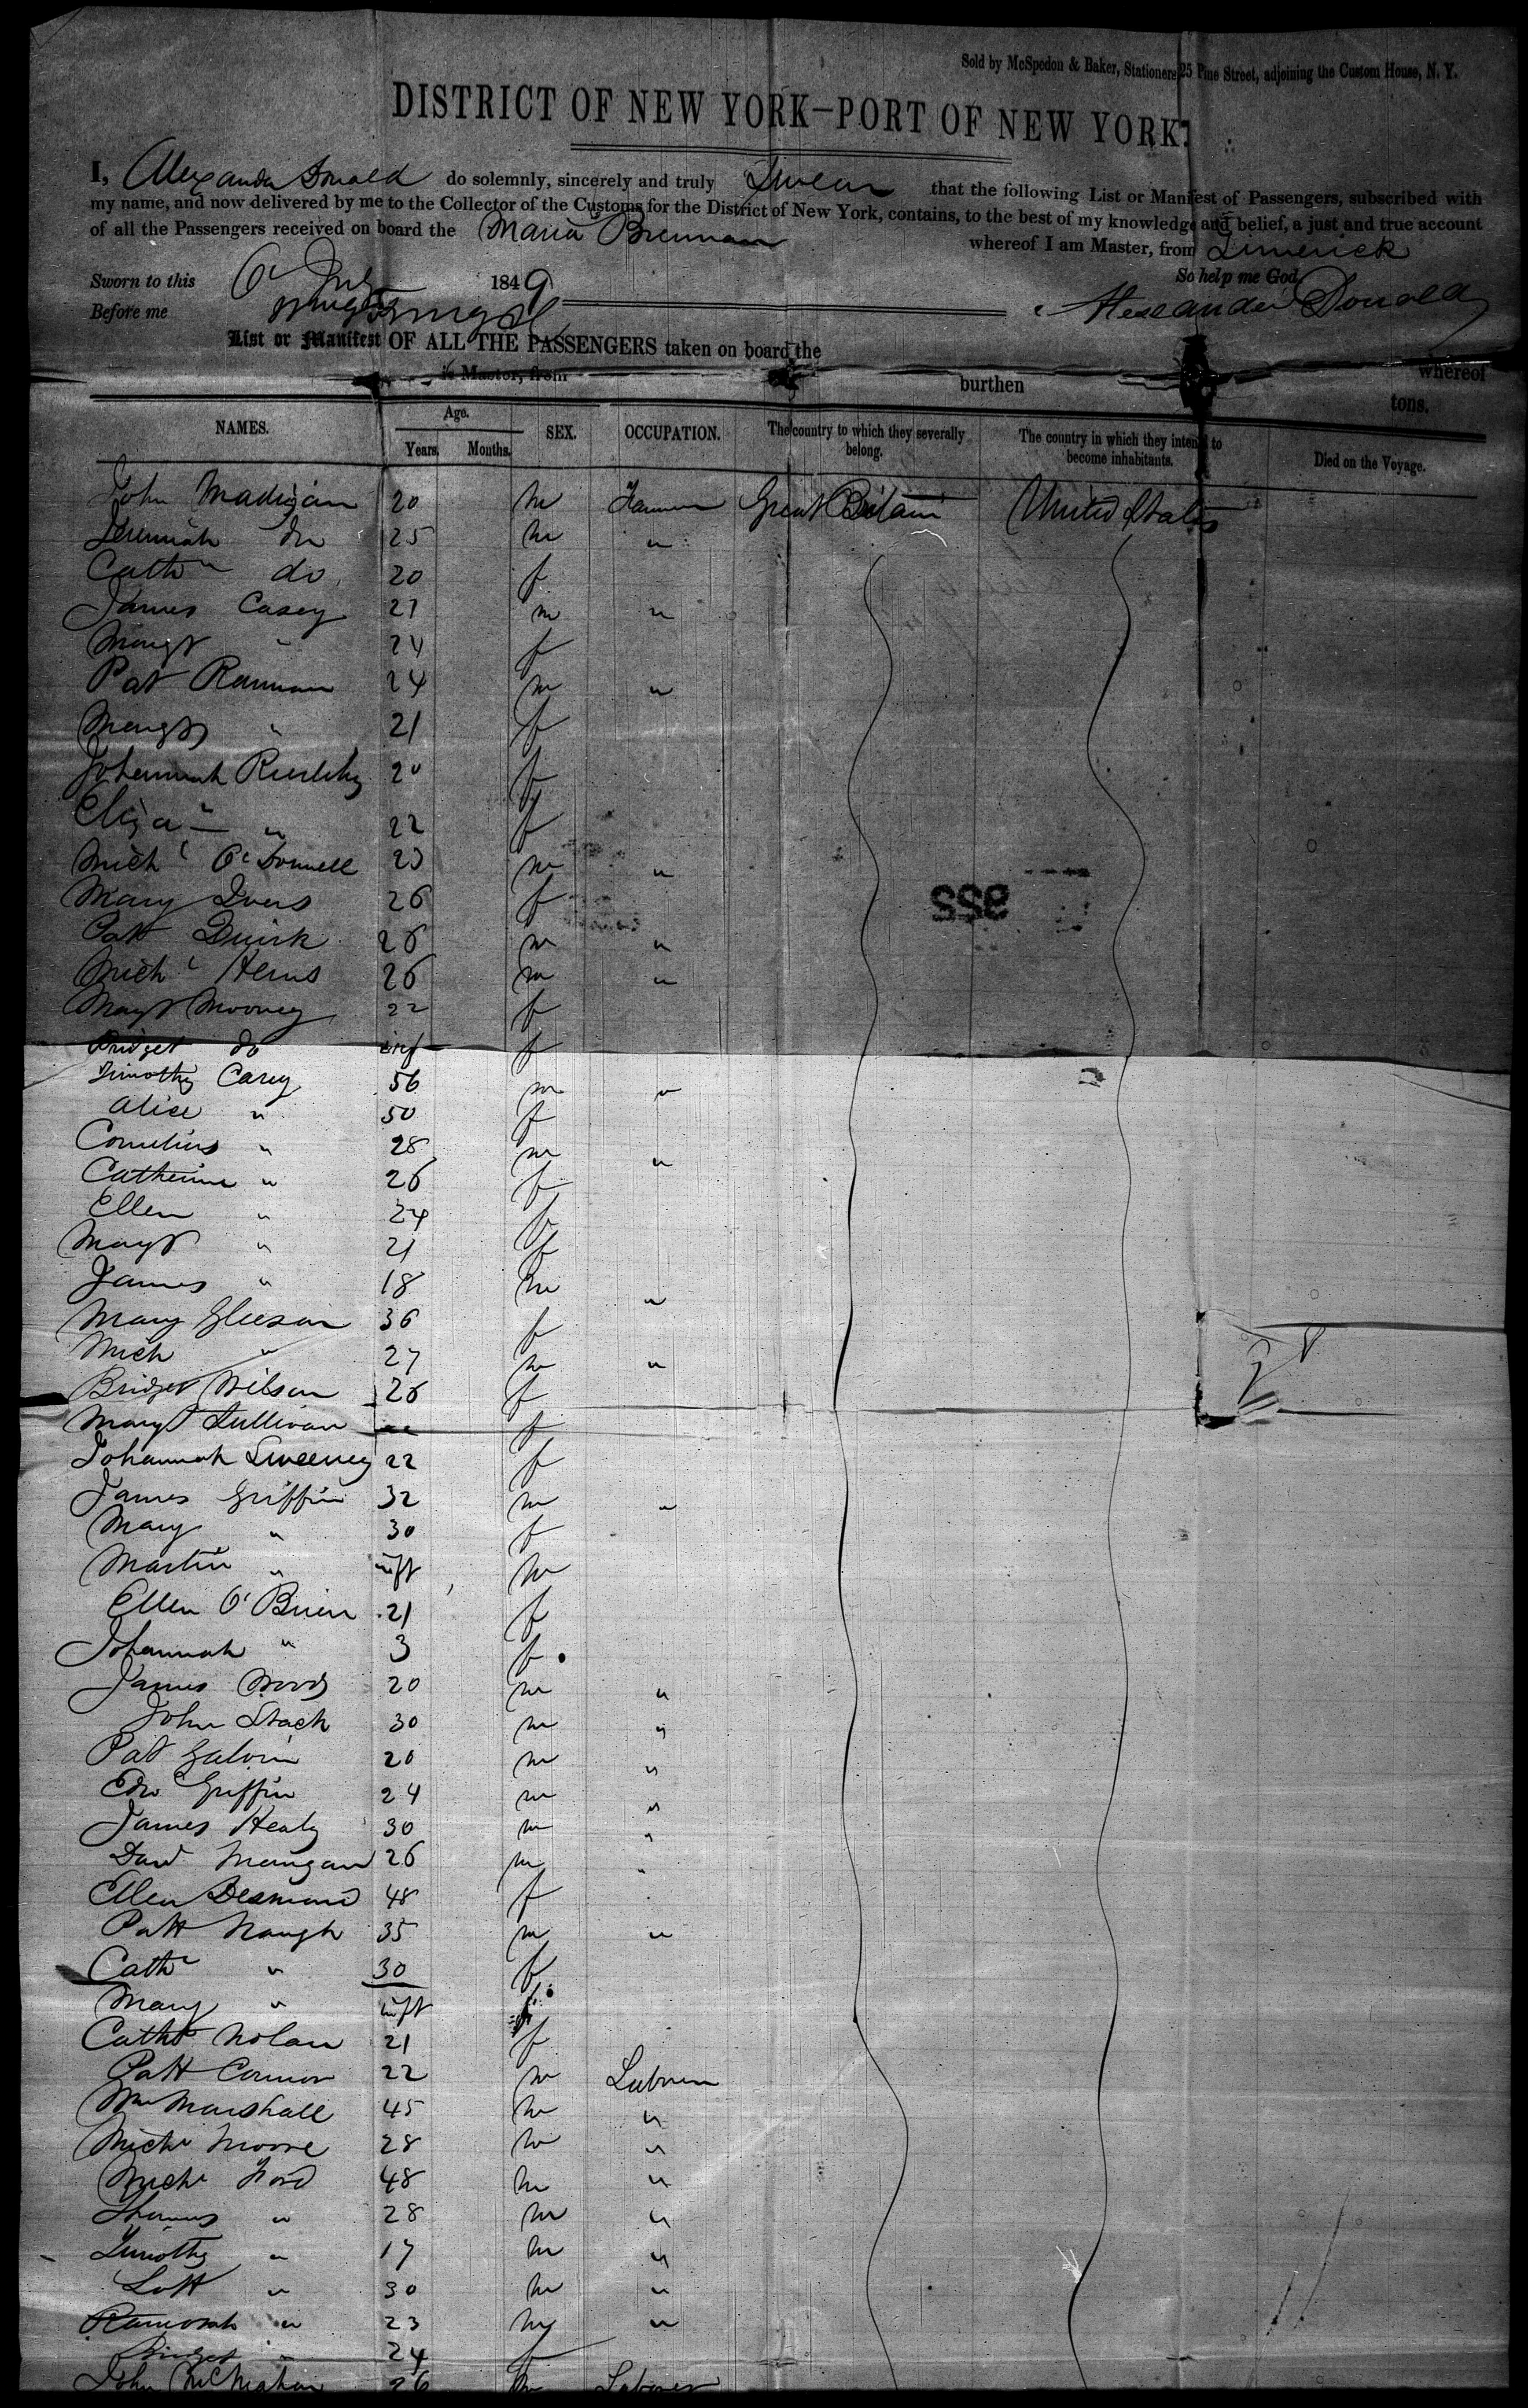 Sold by McSpedon & Baker, Stationers 25 Pine Street, adjoining the Custom House, N. Y.
DISTRICT OF NEW YORK—PORT OF NEW YORK.
I, Alexander Donald do solemnly, sincerely and truly Swear that the following List or Manifest of Passengers, subscribed with
my name, and now delivered by me to the Collector of the Customs for the District of New York, contains, to the best of my knowledge and belief, a just and true account
of all the Passengers received on board the Maria Brennan whereof I am Master, from Limerick
So help me God.
Sworn to this 6 July 1849
Before me
Alexander Donald
List or Manifest OF ALL THE PASSENGERS taken on board the whereof
is Master, from burthen tons.
NAMES. Age. Years. Months. SEX. OCCUPATION. The country to which they severally belong. The country in which they intend to become inhabitants. Died on the Voyage.
John Madigan 20 m Farmer Great Britain United States
Jeremiah do 25 m "
Cath do 20 f
James Casey 27 m "
Margt " 24 f
Pat 24 m "
Margt " 21 f
Johannah 20 f
Eliza " 22 f
Michl O'Donnell 23 m "
Mary Ivers 26 f
Patt Quirk 26 m "
Michl 26 m "
Margt Mooney 22 f
Bridget do inf f
Timothy Carey 56 m "
Alice " 50 f
Cornelius " 28 m "
Catherine " 26 f
Ellen " 24 f
Margt " 21 f
James " 18 m "
Mary Gleeson 36 f
Mich " 27 m "
Bridget Wilson 26 f
Margt Sullivan f
Johannah Sweeney 22 f
James Griffin 32 m "
Mary " 30 f
Martin " inft m
Ellen O'Brien 21 f
Johannah " 3 f
James 20 m "
John Stack 30 m "
Pat Galvin 20 m "
Edw Griffin 24 m "
James Healy 30 m "
Davd Mangan 26 m "
Ellen Desmond 48 f
Patt Naugh 35 m "
Cath " 30 f
Mary " inft f
Cath Nolan 21 f
Patt Connor 22 m Laborer
Wm Marshall 45 m "
Michl Moore 28 m "
Michl 48 m "
Thomas " 28 m "
Timothy " 17 m "
" 30 m "
" 23 m "
Bridget " 24 f
John McMahon 26 m Laborer